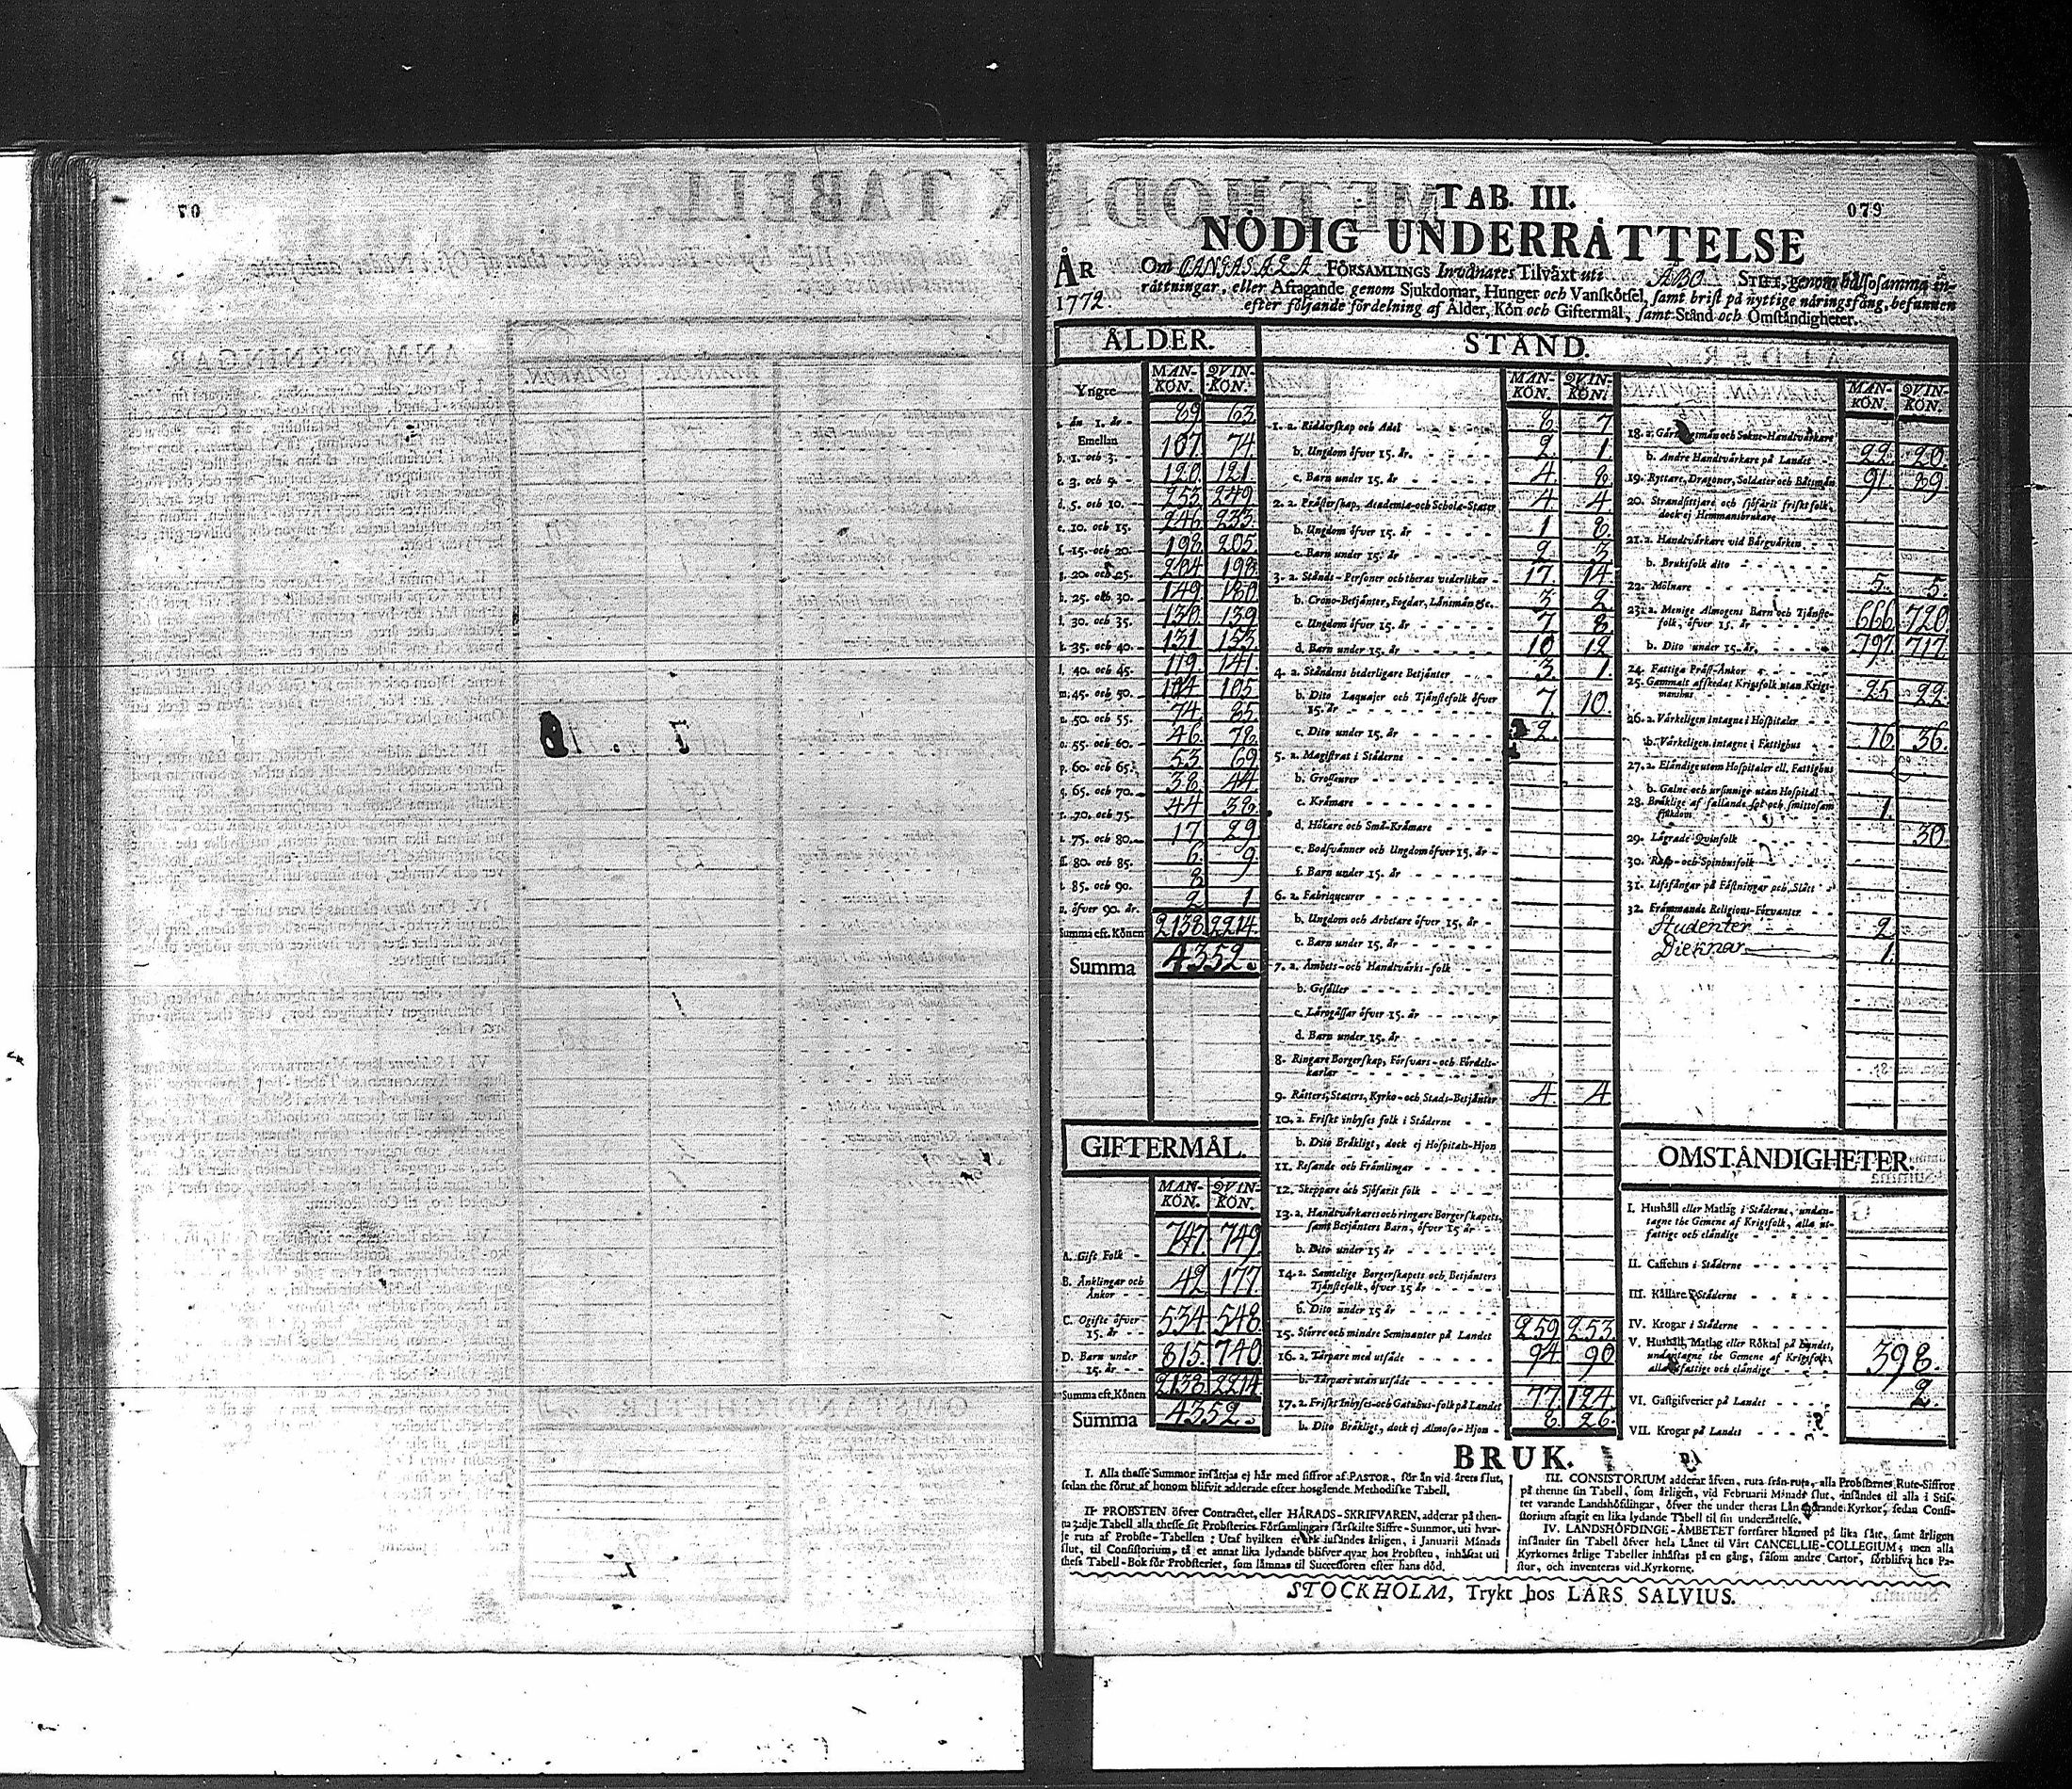 079
TAB. III.
NÖDIG UNDERRÄTTELSE
ÅR 1772
Om CANGASALA FÖRSAMLINGS Invånares Tilväxt uti ÅBO STIFT, genom hälsosamma in-
rättningar, eller Aftagande genom Sjukdomar, Hunger och Vanskötsel, samt brist på nyttige näringsfång, befunnen
efter följande fördelning af Ålder, Kön och Giftermål, samt Stånd och Omständigheter.
ÅLDER.
Yngre MAN-KÖN. QVIN-KÖN.
a. än 1. år - 89 63
Emellan
b. 1. och 3. 107 74
c. 3. och 5. 120. 121.
d. 5. och 10. 255 249
e. 10. och 15. 246 233
f. 15. och 20. 198 205
g. 20. och 25. 204 198
h. 25. och 30. 149 180
i. 30. och 35. 130 139
k. 35. och 40. 131 153
l. 40. och 45. 119 141
m. 45. och 50. 104 105
n. 50. och 55. 74 85
o. 55. och 60. 46 78
p. 60. och 65. 53 69
q. 65. och 70. 38 44
r. 70. och 75. 44 38
s. 75. och 80. 17 29
ss. 80. och 85. 6 9
t. 85. och 90. 8
u. öfver 90. år. 2 1
Summa eft. Könen 2138 2214
Summa 4352.
GIFTERMÅL.
MAN-KÖN. QVIN-KÖN.
A. Gift Folk - 747 749
B. Änklingar och Änkor - 42 177
C. Ogifte öfver 15. år - 534 548
D. Barn under 15. år 815 740
Summa eft. Könen 2138 2214
Summa 4352.
STÅND.
MAN-KÖN. QVIN-KÖN.
1. a. Ridderskap och Adel 8 7
b. Ungdom öfver 15. år. 2 1
c. Barn under 15. år 4 8
2. a. Prästerskap, Academiæ-och Scholæ-Stater 4 4
b. Ungdom öfver 15. år 1 8
c. Barn under 15. år 2 3
3. a. Stånds-Personer och theras vederlikar 17 14
b. Crono-Betjänter, Fogdar, Länsmän &c. 3 2
c. Ungdom öfver 15. år 7 8
d. Barn under 15. år 10 12
4. a. Ståndens hederligare Betjänter 3 1
b. Dito Laquajer och Tjänstefolk öfver 15. år 7 10
c. Dito under 15. år 2.
5. a. Magistrat i Städerne
b. Grosseurer
c. Krämare
d. Hökare och Små-Krämare
e. Bodsvänner och Ungdom öfver 15. år
f. Barn under 15. år
6. a. Fabriqueurer
b. Ungdom och Arbetare öfver 15. år
c. Barn under 15. år
7. a. Ämbets-och Handtvärks-folk
b. Gesäller
c. Lärogåssar öfver 15. år
d. Barn under 15. år
8. Ringare Borgerskap, Försvars-och Fördels-karlar
9. Rätters, Staters, Kyrko-och Stads-Betjänter 4 4
10. a. Friskt inhyses folk i Städerne
b. Dito Bräkligt, dock ej Hospitals-Hjon
11. Resande och Främlingar
12. Skeppare och Sjöfarit folk
13. a. Handtvärkares och ringare Borgerskapets, samt Betjänters Barn, öfver 15 år
b. Dito under 15 år
14. a. Samtelige Borgerskapets och Betjänters Tjänstefolk, öfver 15 år
b. Dito under 15 år
15. Större och mindre Seminanter på Landet 259 253
16. a. Torpare med utsäde 94 90
b. Torpare utan utsäde
17. a. Friskt Inhyses-och Gatuhus-folk på Landet 77 124
b. Dito Bräkligt, dock ej Almoso-Hjon 8 26
MAN-KÖN. QVIN-KÖN.
18. a. Gärningsmän och Sokne-Handtvärkare
b. Andre Handtvärkare på Landet 22 20
19. Ryttare, Dragoner, Soldater och Båtsmän 91 89
20. Strandsittjare och sjöfarit friskt folk, dock ej Hemmansbrukare
21. a. Handtvärkare vid Bärgvärken
b. Bruksfolk dito
22. Mölnare 5 5
23. a. Menige Almogens Barn och Tjänstefolk, öfver 15. år 666 720
b. Dito under 15. år. 797 717
24. Fattiga Präst-Änkor
25. Gammalt afskedat Krigsfolk utan Krigsmanshus 25 22
26. a. Värkeligen intagne i Hospitaler
b. Värkeligen intagne i Fattighus 16 36
27. a. Eländige utom Hospitaler ell. Fattighus
b. Galne och ursinnige utan Hospital
28. Bräklige af fallande sot och smittosam sjukdom 1
29. Lägrade Qvinfolk 30
30. Rasp-och Spinhusfolk
31. Lifsfångar på Fästningar och Slått
32. Främmande Religions-Förvanter
Studenter 2
Dieknar 1
OMSTÄNDIGHETER.
I. Hushåll eller Matlag i Städerne, undantagne the Gemene af Krigsfolk, alla utfattige och eländige
II. Caffehus i Städerne
III. Källare i Städerne
IV. Krogar i Städerne
V. Hushåll, Matlag eller Röktal på Landet, undantagne the Gemene af Krigsfolk, alla utfattige och eländige 398.
VI. Gästgifverier på Landet 2.
VII. Krogar på Landet
BRUK.
I. Alla thesse Summor insättjas ej här med siffror af PASTOR, för än vid årets slut,
sedan the förut af honom blifvit adderade efter hosgående Methodiske Tabell.
II. PROBSTEN öfver Contractet, eller HÄRADS-SKRIFVAREN, adderar på then-
na 3:dje Tabell alla thesse sit Probsteries Församlingars särskilte Siffre-Summor, uti hvar-
je ruta af Probste-Tabellen: Utaf hvilken et ark insändes årligen, i Januarii Månads
slut, til Consistorium, tå et annat lika lydande blifver qvar hos Probsten, inhäftat uti
thess Tabell-Bok för Probsteriet, som lämnas til Successoren efter hans död.
III. CONSISTORIUM adderar äfven, ruta från ruta, alla Probstarnes Rute-Siffror
på thenne sin Tabell, som årligen, vid Februarii Månads slut, insändes til alla i Stif-
tet varande Landshöfdingar, öfver the under theras Län hörande Kyrkor, sedan Consi-
storium aftagit en lika lydande Tabell til sin underrättelse.
IV. LANDSHÖFDINGE-ÄMBETET fortfarer härmed på lika sätt, samt årligen
insänder sin Tabell öfver hela Länet til Vårt CANCELLIE-COLLEGIUM; men alla
Kyrkornes årlige Tabeller inhäftas på en gång, såsom andre Cartor, förblifva hos Pa-
stor, och inventeras vid Kyrkorne.
STOCKHOLM, Trykt hos LARS SALVIUS.